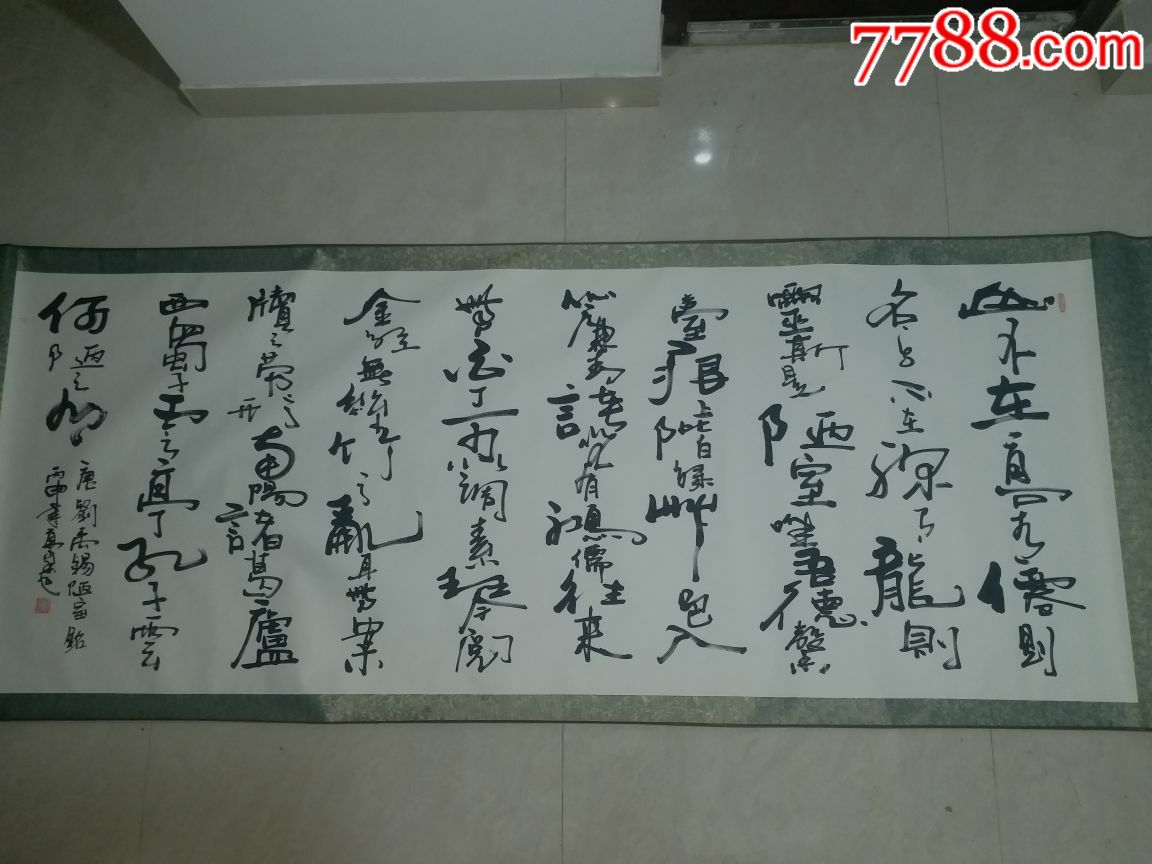 7788.com
山不在高有僊則
名水不在深有龍則
靈斯是陋室唯吾德馨
苔痕上階綠艸色入
簾青談笑有鴻儒往來
無白丁可以調素琴閱
金經無絲竹之亂耳無案
牘之勞形南陽諸葛廬
西蜀子雲之亭孔子雲
何陋之有
唐劉禹錫陋室銘